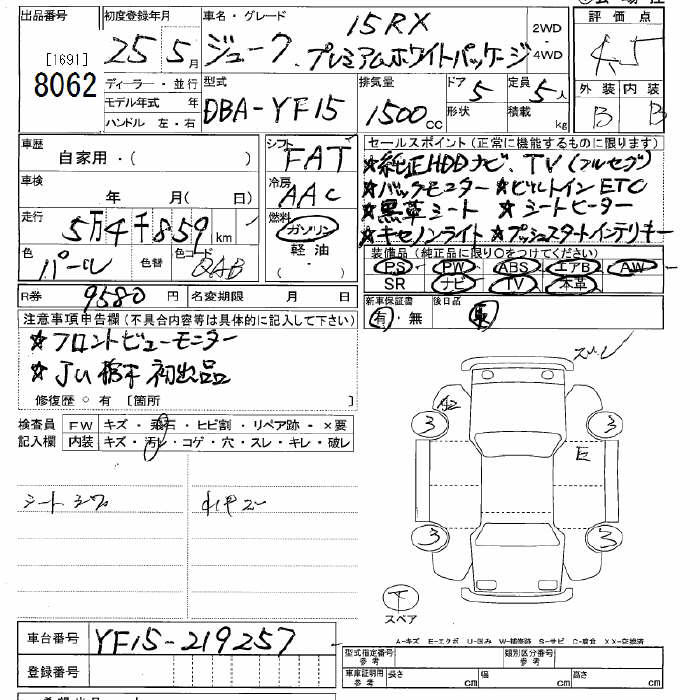 出品番号 初度登録年月 車名・グレード 評価点
[1691] 8062
25 5月 ジューク 15RX プレミアムホワイトパッケージ 2WD・4WD 4.5
ディーラー・並行 型式 排気量 ドア 定員 外装 内装
モデル年式 年 DBA-YF15 1500cc 5 5人 B B
ハンドル 左・右 形状 積載 kg
車歴 自家用・( ) シフト FAT セールスポイント(正常に機能するものに限ります)
★純正HDDナビ、TV(フルセグ)
車検 年 月( 日) 冷房 AAC ★バックモニター ★ビルトインETC
★黒革シート ★シートヒーター
走行 5万4千859km 燃料 ガソリン 軽油 ( - ) ★キセノンライト ★プッシュスタートインテリキー
色 パール 色替 色コード QAB 装備品(純正品に限り○をつけてください)
PS PW ABS エアB AW
SR ナビ TV 本革
R券 9580円 名変期限 月 日 新車保証書 後日品
有・無
注意事項申告欄(不具合内容等は具体的に記入して下さい)
★フロントビューモニター
★JU栃木初出品
修復歴 ○有 [箇所 ]
検査員 FW キズ・飛石・ヒビ割・リペア跡・×要
記入欄 内装 キズ・汚レ・コゲ・穴・スレ・キレ・破レ
シートシワ
A2
3 3
E
3 3
スペア
A-キズ E-エクボ U-凹み W-補修跡 S-サビ C-腐食 XX-交換済
車台番号 YF15-219257
型式指定番号 参考 類別区分番号 参考
登録番号 車庫証明用 参考 長さ cm 幅 cm 高さ cm